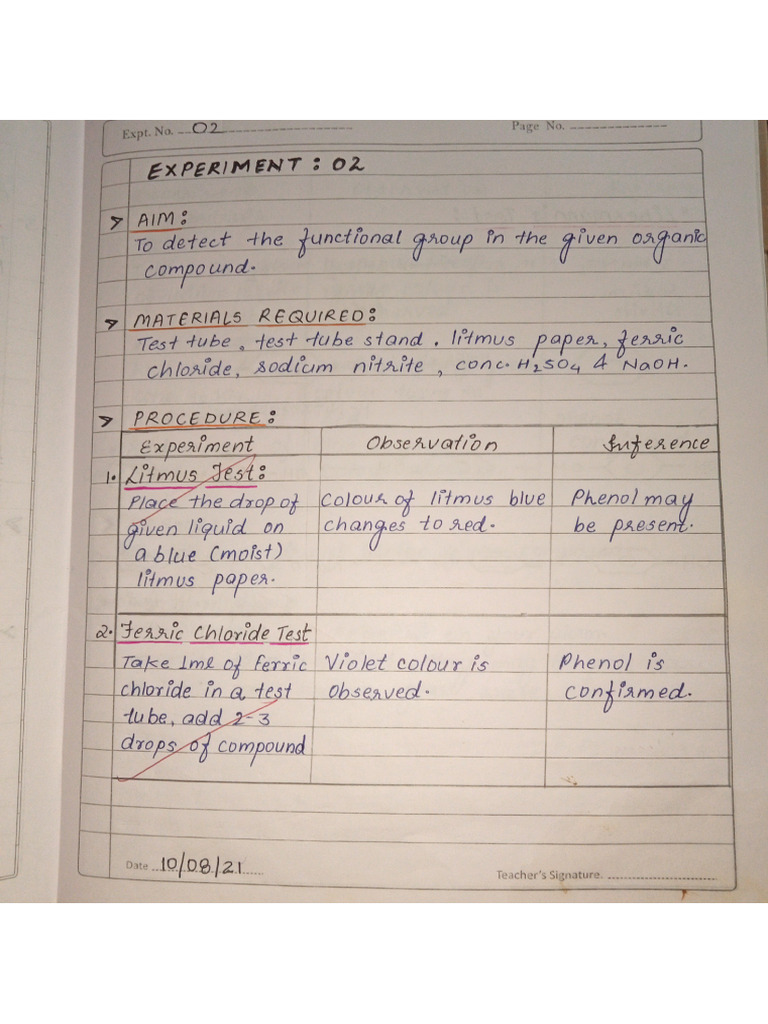 Expt. No. 02
Page No.
EXPERIMENT : 02
AIM:
To detect the functional group in the given organic
compound.
MATERIALS REQUIRED:
Test tube, test tube stand, litmus paper, ferric
chloride, sodium nitrite, conc. H2SO4 & NaOH.
PROCEDURE:
Experiment Observation Inference
1. Litmus Test:
Place the drop of colour of litmus blue Phenol may
given liquid on changes to red. be present.
a blue (moist)
litmus paper.
2. Ferric Chloride Test
Take 1ml of ferric Violet colour is Phenol is
chloride in a test observed. confirmed.
tube, add 2-3
drops of compound
Date 10/08/21
Teacher's Signature.